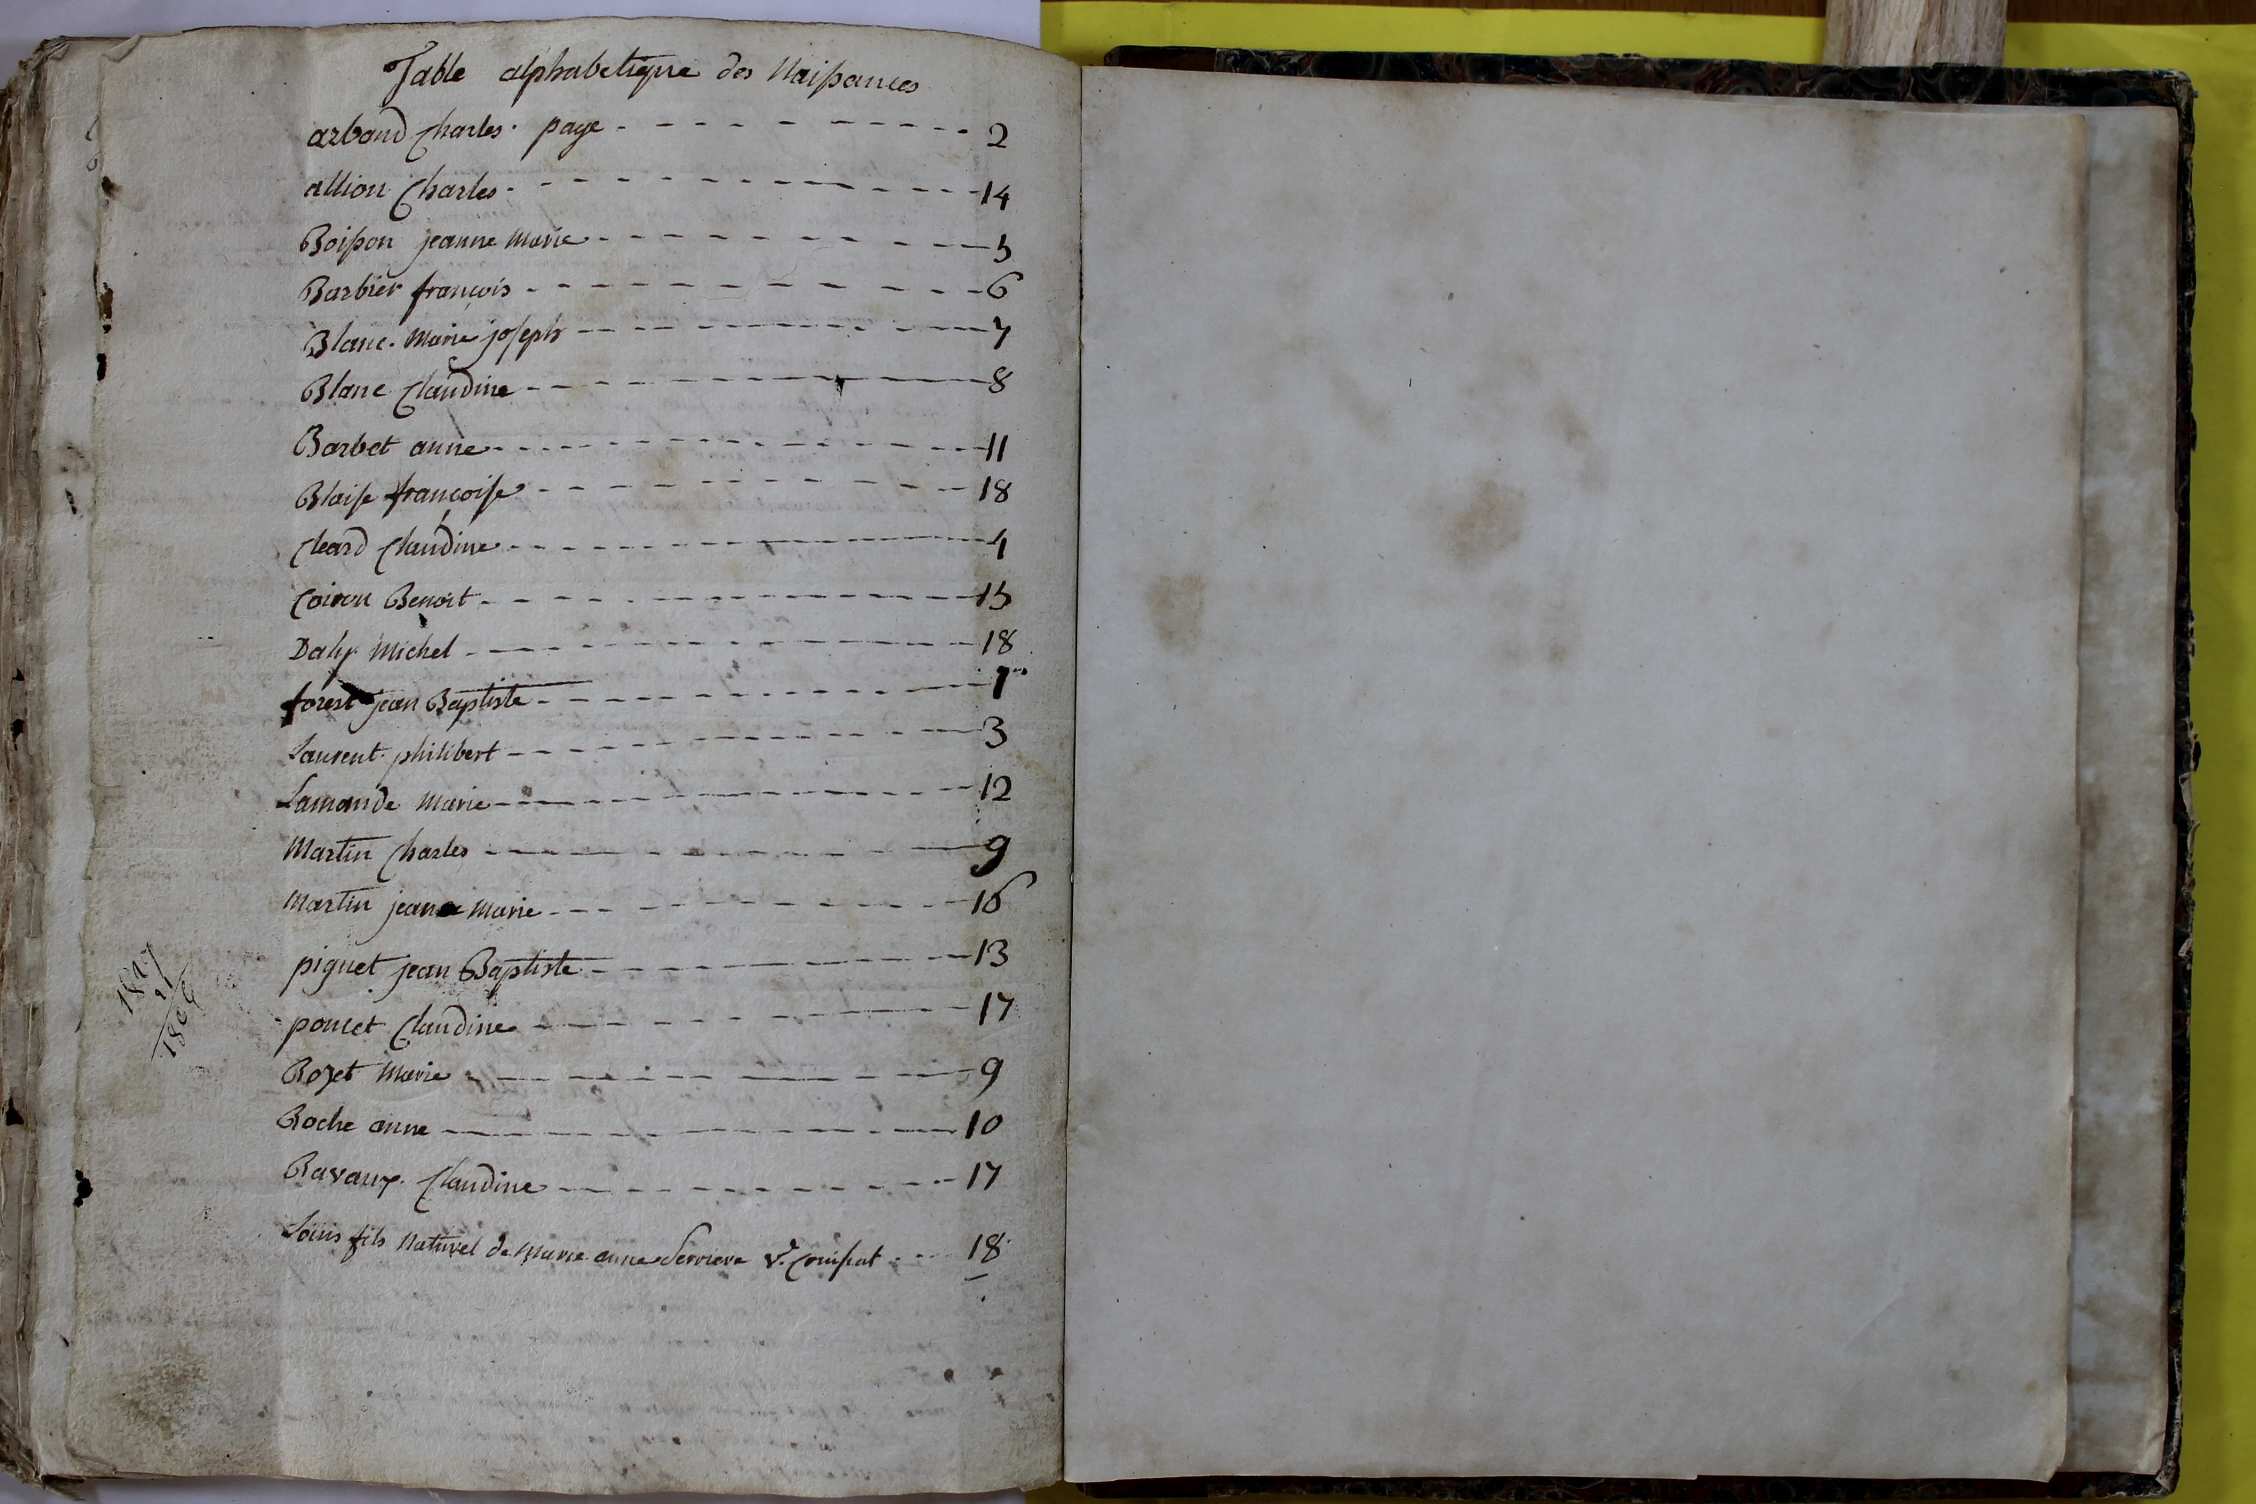 Table alphabetique des Naissances
arbaud Charles. page 2
allion Charles 14
Boisson jeanne Marie 5
Barbier françois 6
Blanc. Marie joseph 7
Blanc Claudine 8
Barbet anne 11
Blaise françoise 18
Cleard Claudine 4
Coiron Benoit 15
Daly Michel 18
forest jean Baptiste 1
Laurent philibert 3
Lamande Marie 12
Martin Charles 9
Martin jean Marie 16
piguet jean Baptiste 13
poncet Claudine 17
Rozet Marie 9
Roche anne 10
Ravaux Claudine 17
Louis fils Naturel de Marie anne v.e 18